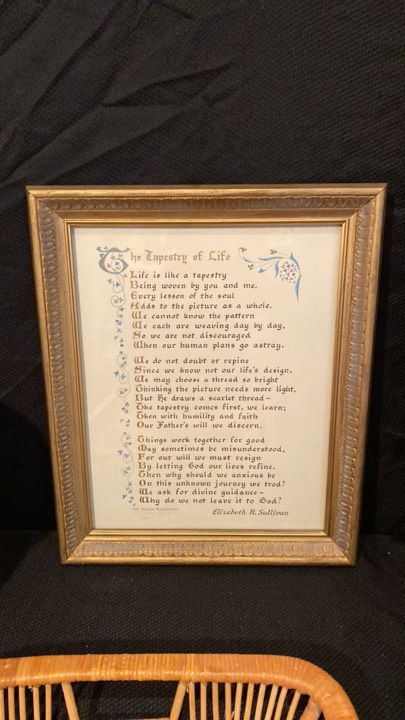 The Tapestry of Life
Life is like a tapestry
Being woven by you and me,
Every lesson of the soul
Adds to the picture as a whole.
We cannot know the pattern
We each are weaving day by day,
So we are not discouraged
When our human plans go astray.
We do not doubt or repine
Since we know not our life's design.
We may choose a thread so bright
Thinking the picture needs more light,
But He draws a scarlet thread-
The tapestry comes first, we learn;
Then with humility and faith
Our Father's will we discern.
Things work together for good
May sometimes be misunderstood,
For our will we must resign
By letting God our lives refine.
Then why should we anxious be
On this unknown journey we trod?
We ask for divine guidance-
Why do we not leave it to God?
Elizabeth R. Sullivan